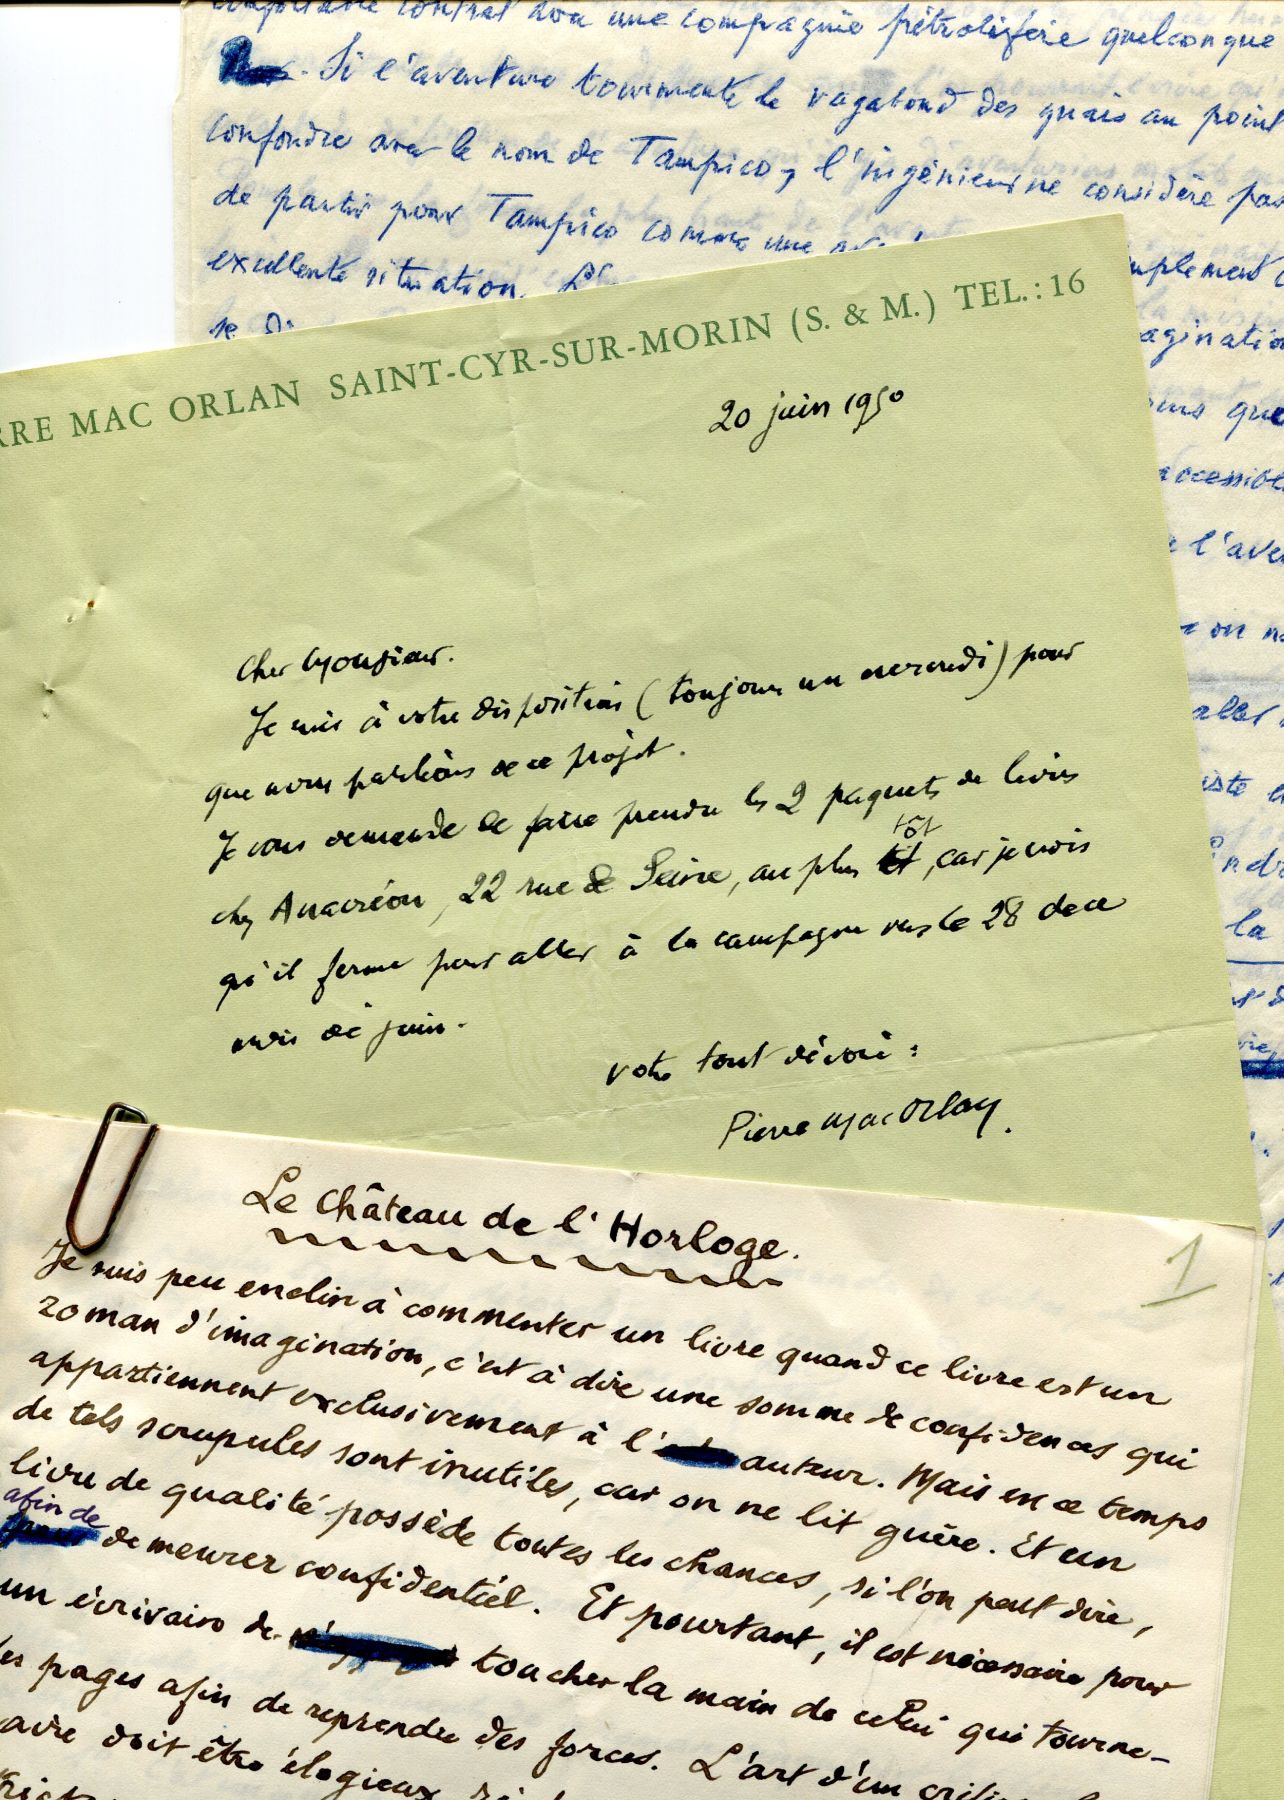 contrat avec une compagnie pétrolifère quelconque
Si l'aventure tourmente le vagabond des quais au point
confondre avec le nom de Tampico, l'ingénieur ne considère pas
de partir pour Tampico comme une
excellente situation.
se
implement
agination
que
accessible
l'ave
on
aller
iste
la
RRE MAC ORLAN SAINT-CYR-SUR-MORIN (S. & M.) TEL.: 16
20 juin 1950
Cher Monsieur.
Je suis à votre disposition (toujours un mercredi) pour
que nous parlions de ce projet.
Je vous demande de faire prendre les 2 paquets de livres
tôt
chez Anacréon, 22 rue de Seine, au plus , car je crois
qu'il ferme pour aller à la campagne vers le 28 de ce
mois de juin.
votre tout dévoué :
Pierre Mac Orlan.
Le Château de l'Horloge.
1
Je suis peu enclin à commenter un livre quand ce livre est un
roman d'imagination, c'est à dire une somme de confidences qui
appartiennent exclusivement à l'auteur. Mais en ce temps
de tels scrupules sont inutiles, car on ne lit guère. Et un
livre de qualité possède toutes les chances, si l'on peut dire,
afin de
demeurer confidentiel. Et pourtant, il est nécessaire pour
un écrivain de toucher la main de celui qui tourne-
les pages afin de reprendre des forces. L'art d'un
aire doit être élogieux